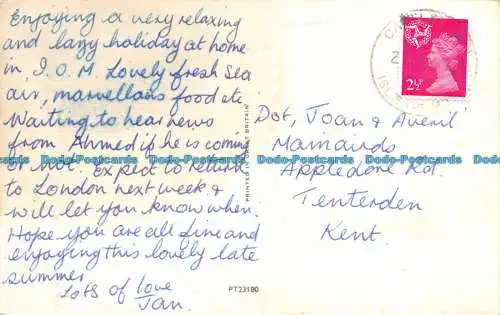 Enjoying a very relaxing
and lazy holiday at home
in I.O.M. Lovely fresh Sea
air, marvellous food etc
Waiting to hear news
from Ahmed if he is coming
or not. Expect to return
to London next week &
will let you know when.
Hope you are all fine and
enjoying this lovely late
summer.
Lots of love
Jan.
PRINTED IN GREAT BRITAIN
PT23180
2½p
ISLE OF
Dot, Joan & Averil
Appledore Rd.
Tenterden
Kent.
Dodo-Postcards Dodo-Postcards Dodo-Postcards Dodo-Postcards Dodo-Postcards